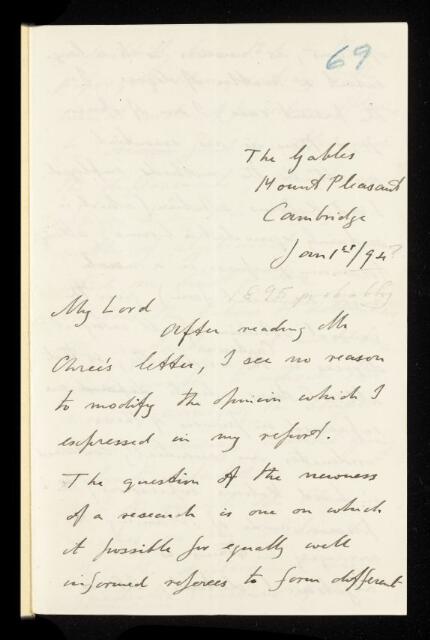 69
The Gables
Mount Pleasant
Cambridge
Jan 1st/94?
1895 probably
My Lord
After reading Mr
Chree's letter, I see no reason
to modify the opinion which I
expressed in my report.
The question of the newness
of a research is one on which
it possible for equally well
informed referees to form different